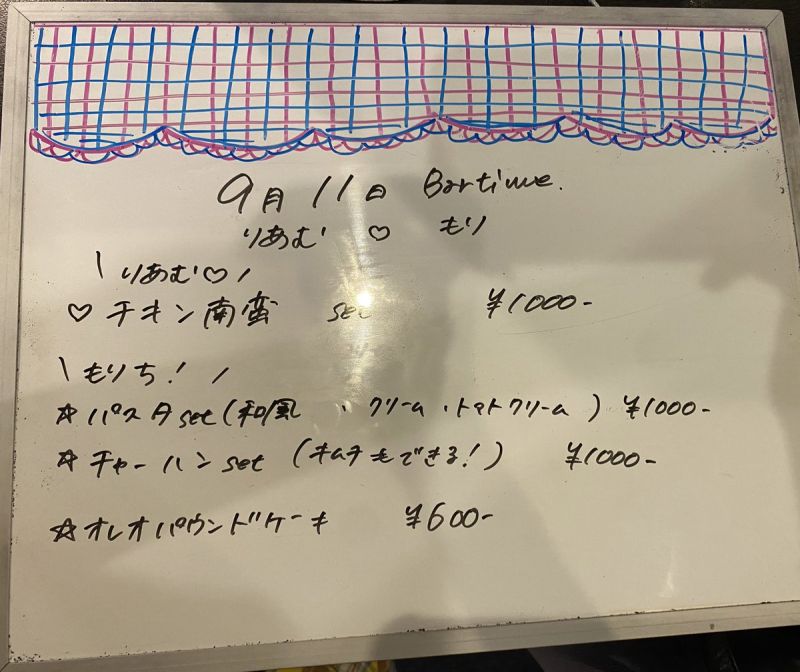 9月11日 Bartime.
りあむ ♡ もり
\ りあむ♡ /
♡ チキン南蛮 set ¥1000-
\ もりち! /
☆ パスタset(和風、クリーム、トマトクリーム) ¥1000-
☆ チャーハンset (キムチもできる!) ¥1000-
☆ オレオパウンドケーキ ¥600-